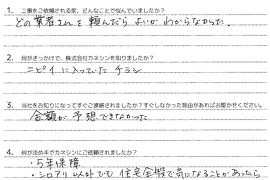 1. 工事をご依頼される前、どんなことで悩んでいましたか?
どの業者さんを頼んだらよいかわからなかった。
2. 何がきっかけで、株式会社カネシンを知りましたか?
ニピイに入っていたチラシ
3. 当社をお知りになってすぐご連絡されましたか?すぐしなかった理由があればお聞かせください。
金額が予想できなかった
4. 何が決め手でカネシンにご依頼されましたか?
・5年保障
・シロアリ以外でも住宅全般で気になることがあったら